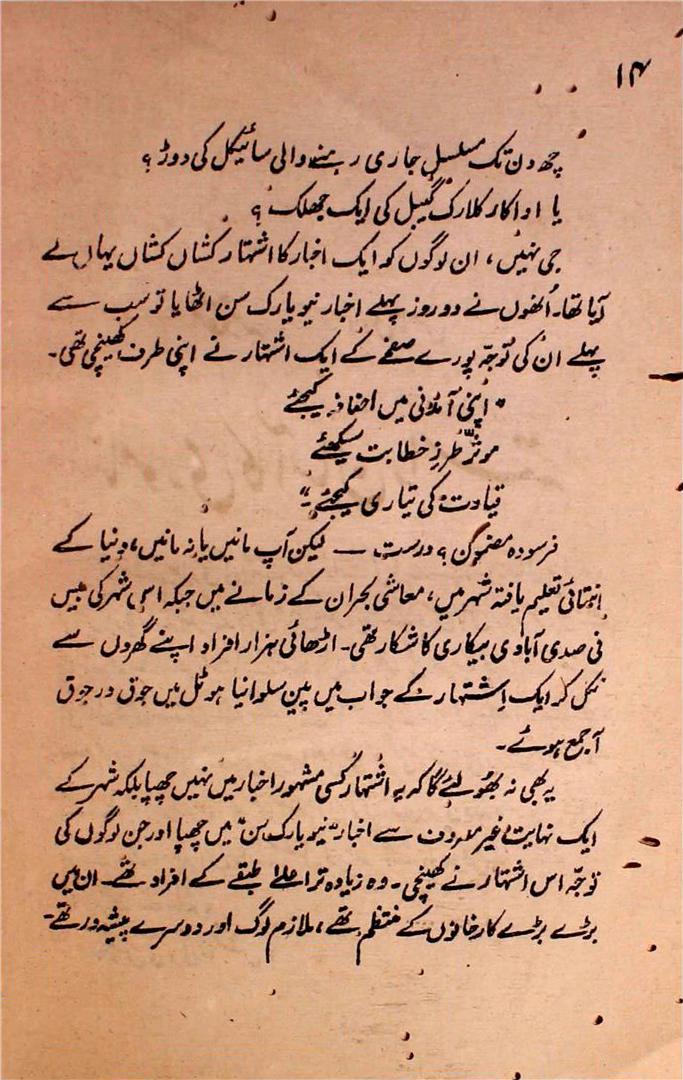 ۱۴
چھ دن تک مسلسل جاری رہنے والی سائیکل کی دوڑ؟
یا اداکار کلارک گیبل کی ایک جھلک؟
جی نہیں، ان لوگوں کو ایک اخبار کا اشتہار کشاں کشاں یہاں لے
آیا تھا۔ اُنھوں نے دو روز پہلے اخبار نیویارک سن اٹھایا تو سب سے
پہلے ان کی توجّہ پورے صفحے کے ایک اشتہار نے اپنی طرف کھینچی تھی۔
"اپنی آمدنی میں اضافہ کیجئے
موثّر طرزِ خطابت سیکھئے
قیادت کی تیاری کیجئے۔"
فرسودہ مضمون؟ درست — لیکن آپ مانیں یا نہ مانیں، دنیا کے
انتہائی تعلیم یافتہ شہر میں، معاشی بحران کے زمانے میں جبکہ اس شہر کی بیس
فی صدی آبادی بیکاری کا شکار تھی۔ اڑھائی ہزار افراد اپنے گھروں سے
نکل کر ایک اِشتہار کے جواب میں پین سلوانیا ہوٹل میں جوق در جوق
آ جمع ہوئے۔
یہ بھی نہ بھُولئے گا کہ یہ اشتہار کسی مشہور اخبار میں نہیں چھپا بلکہ شہر کے
ایک نہایت غیر معروف سے اخبار "نیویارک سن" میں چھپا اور جن لوگوں کی
توجّہ اس اشتہار نے کھینچی۔ وہ زیادہ تر اعلےٰ طبقے کے افراد تھے۔ ان میں
بڑے بڑے کارخانوں کے منتظم تھے، ملازم لوگ اور دوسرے پیشہ ور تھے۔